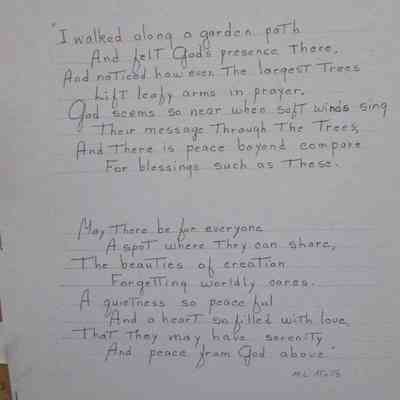 "I walked along a garden path
And felt God's presence There.
And noticed how even The largest Trees
Lift leafy arms in prayer.
God seems so near when soft winds sing
Their message Through The Trees,
And There is peace beyond compare
For blessings such as These.
May There be for everyone
A spot where They can share,
The beauties of creation
Forgetting worldly cares.
A quietness so peaceful
And a heart so filled with love,
That They may have serenity
And peace from God above."